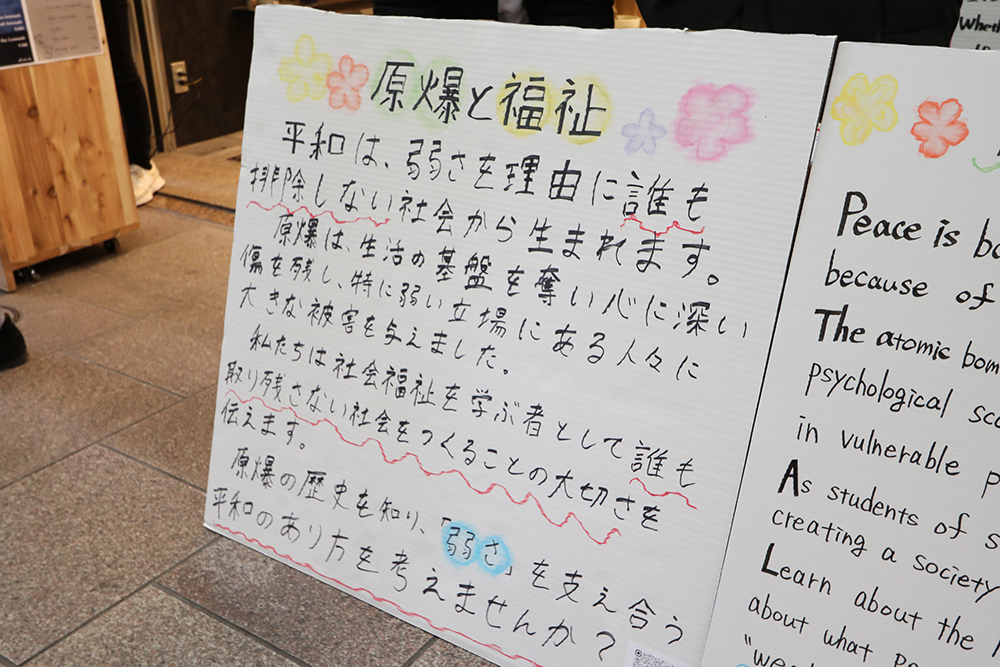 原爆と福祉
平和は、弱さを理由に誰も
排除しない社会から生まれます。
原爆は、生活の基盤を奪い心に深い
傷を残し、特に弱い立場にある人々に
大きな被害を与えました。
私たちは社会福祉を学ぶ者として誰も
取り残さない社会をつくることの大切さを
伝えます。
原爆の歴史を知り、「弱さ」を支え合う
平和のあり方を考えませんか？
Peace is
because of
The atomic
psychological
in vulnerable
As students of
creating a society
Learn about the
about what